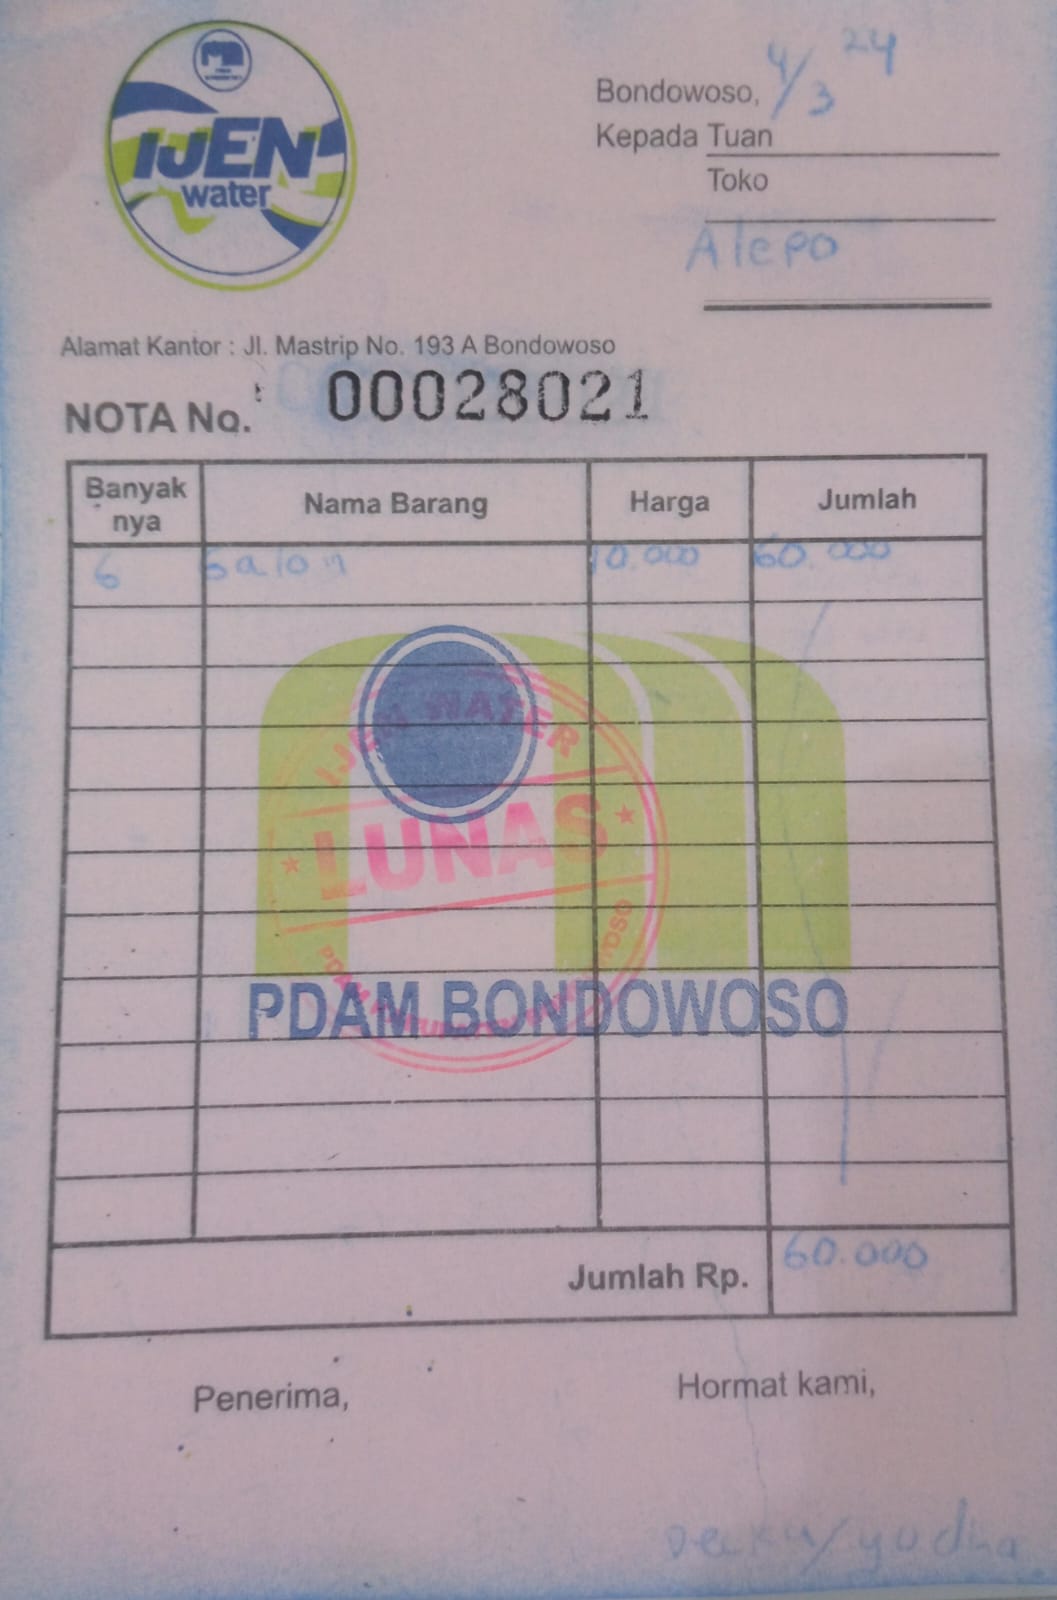 IJEN
water
Bondowoso, 4/3 24
Kepada Tuan
Toko
Alepo
Alamat Kantor : Jl. Mastrip No. 193 A Bondowoso
NOTA No. : 00028021
Banyak nya Nama Barang Harga Jumlah
6 Galon 10.000 60.000
IJEN WATER
LUNAS
PDAM BONDOWOSO
Jumlah Rp. 60.000
Penerima, Hormat kami,
yudha